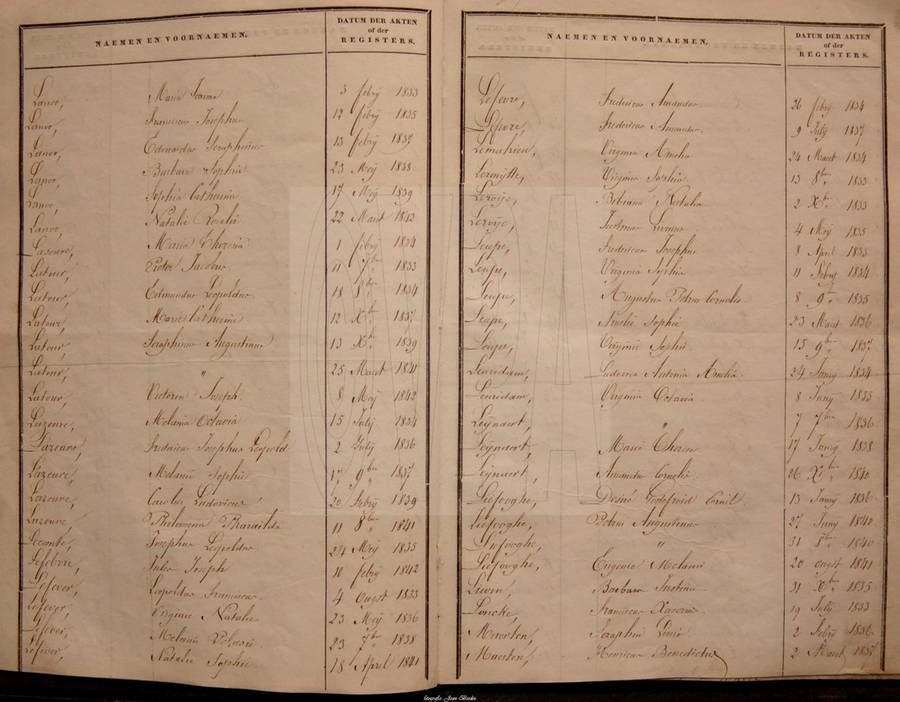 NAEMEN EN VOORNAEMEN.
DATUM DER AKTEN
of der
REGISTERS.
Maria 3 febry 1833
Franciscus Josephus 12 febry 1835
Edouardus Seraphinus 13 febry 1837
Barbara Sophie 23 Mey 1838
Sophia Catherina 17 Mey 1839
Natalie Rosalie 22 Maart 1843
Maria Theresia 1 febry 1834
Latour, Victor Jacobus 11 7ber 1833
Latour, Edmundus Leopoldus 18 8ber 1834
Latour, Marie Catherine 12 Xber 1837
Latour, Seraphinus Augustinus 13 Xber 1839
Latour, " 25 Maart 1841
Latour, Victoria Joseph 8 Mey 1842
Lazeure, Melania Octavia 15 July 1834
Lazeure, Fredericus Josephus Leopold 2 July 1836
Lazeure, Melanie Sophie 17 9ber 1837
Lazeure, Carolus Ludovicus 20 Febry 1839
Lazeure, Philomena Pharailde 11 8ber 1841
Lecante, Josephus Leopoldus 24 Mey 1835
Lefebvre, Jules Joseph 10 febry 1842
Lefever, Leopoldus Franciscus 4 Ougst 1833
Lefever, Virginie Natalie 23 Mey 1836
Lefever, Melanie 23 7ber 1838
Lefever, Natalie Sophie 18 April 1841
NAEMEN EN VOORNAEMEN.
DATUM DER AKTEN
of der
REGISTERS.
Lefevre, Fredericus Amandus 26 febry 1834
Lefevre, Fredericus Amandus 9 July 1837
Lemahieu, Virginia Amelia 24 Maart 1834
Lermytte, Virginia Sophia 13 8ber 1833
Leroije, Natalia 2 Xber 1833
Leroije, 4 Mey 1835
Leupe, Fredericus Josephus 8 April 1833
Leupe, Virginia Sophia 11 Febry 1834
Leupe, Augustus Petrus Cornelis 8 9ber 1835
Leupe, Amelie Sophie 23 Maart 1836
Leupe, Virginie Sophie 15 9ber 1837
Leuridam, Ludovica Antonia Amelia 24 Juny 1834
Leuridam, Virginia Octavia 8 Juny 1835
Leijnaert, " 7 7ber 1836
Leijnaert, Marie Therese 17 Juny 1838
Leijnaert, Amandus Cornelis 26 Xber 1840
Liefooghe, Desiré Godefroid Cornil 13 Juny 1836
Liefooghe, Petrus Augustinus 27 Juny 1840
Liefooghe, " 31 8ber 1840
Liefooghe, Eugenia Melanie 20 ougst 1841
Lievin, Barbara Justina 31 Xber 1835
Franciscus Xaverius 19 July 1833
Maerten, Seraphin Louis 2 Febry 1836
Maerten, Henricus Benedictus 2 Maart 1837